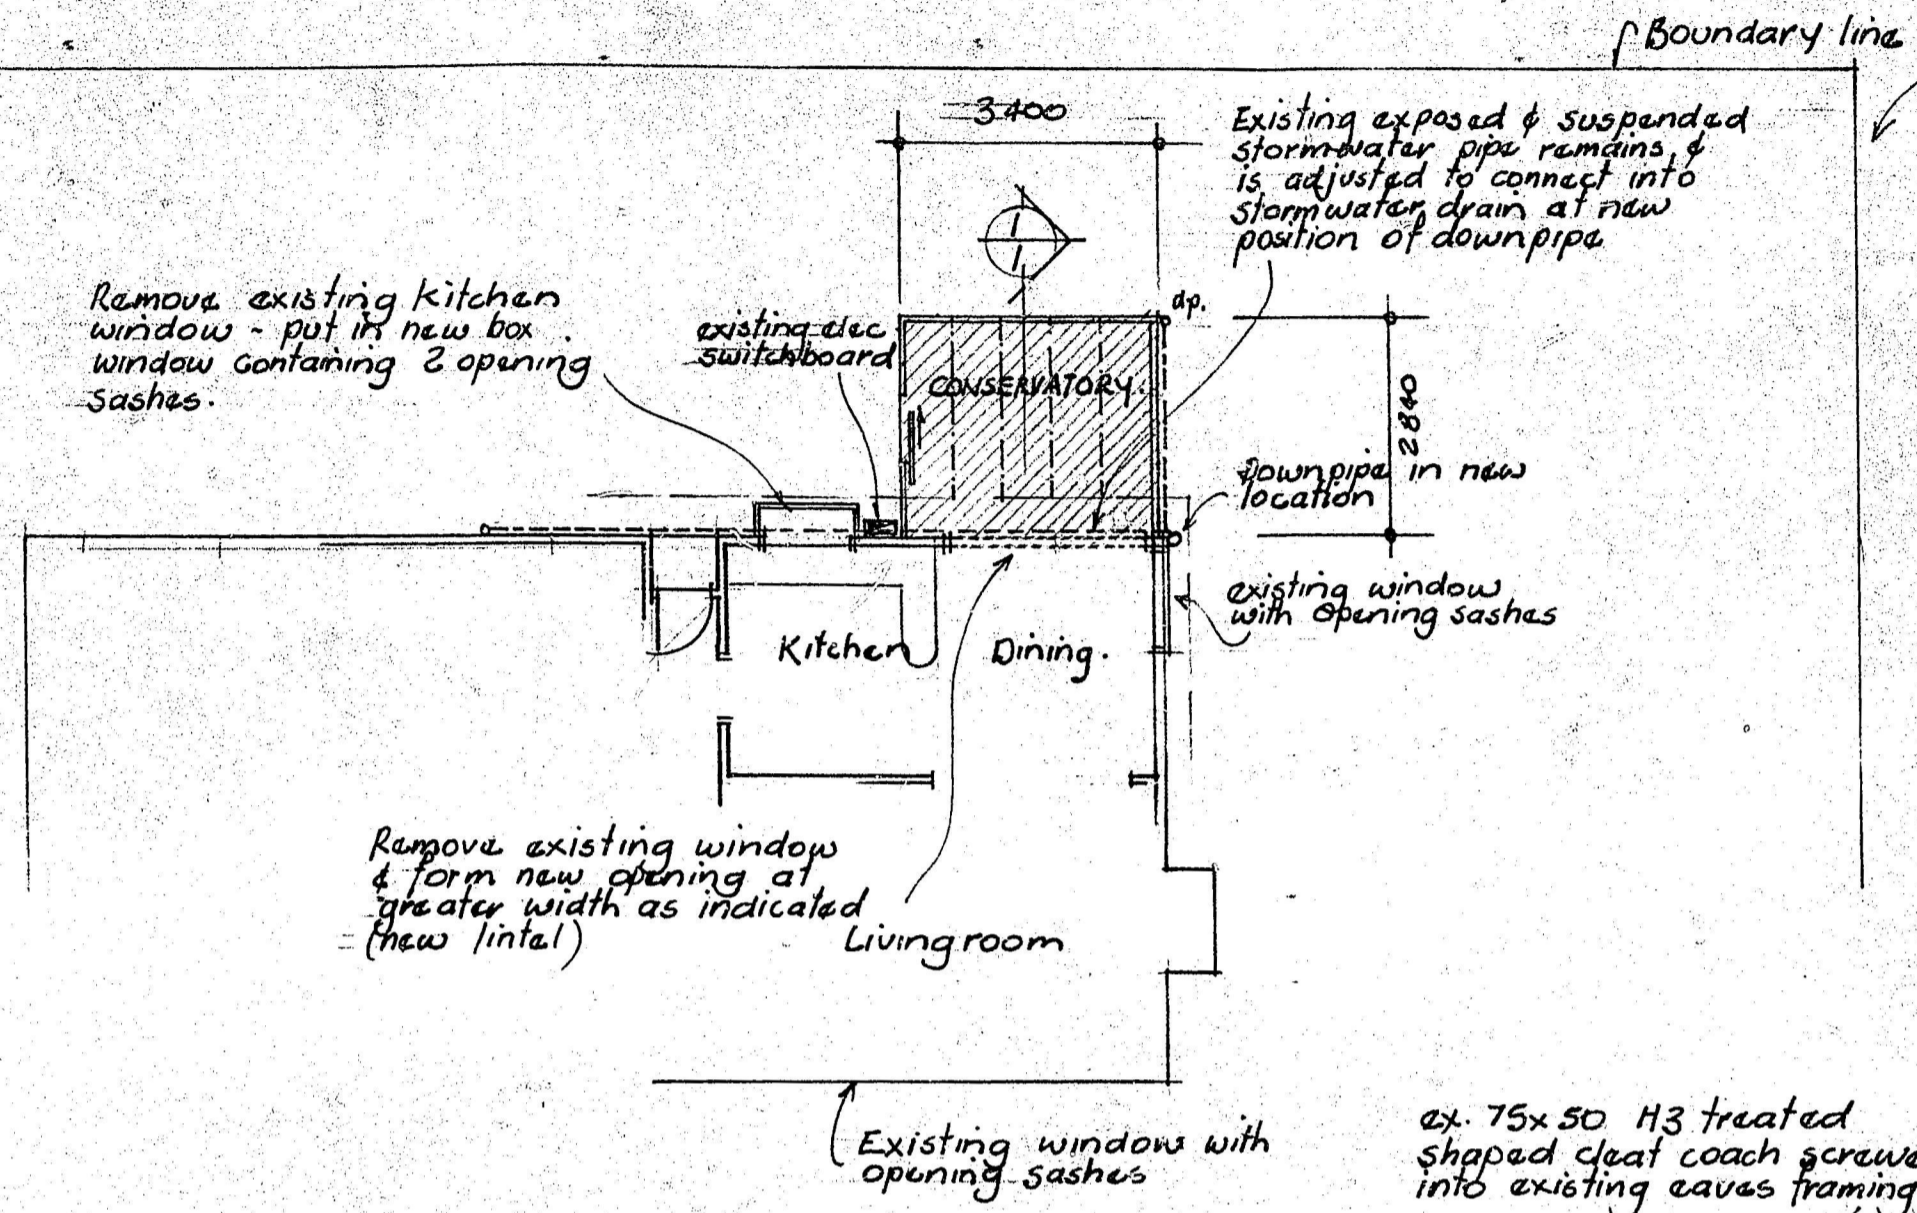 Boundary line
3400
Existing exposed & suspended
stormwater pipe remains &
is adjusted to connect into
stormwater drain at new
position of downpipe
1
1
dp.
Remove existing kitchen
window - put in new box
window containing 2 opening
sashes.
existing elec
switchboard
CONSERVATORY.
2840
Downpipe in new
location
existing window
with opening sashes
Kitchen
Dining.
Remove existing window
& form new opening at
greater width as indicated
(new lintel)
Living room
Existing window with
opening sashes
ex. 75x50 H3 treated
shaped cleat coach screwe
into existing eaves framing